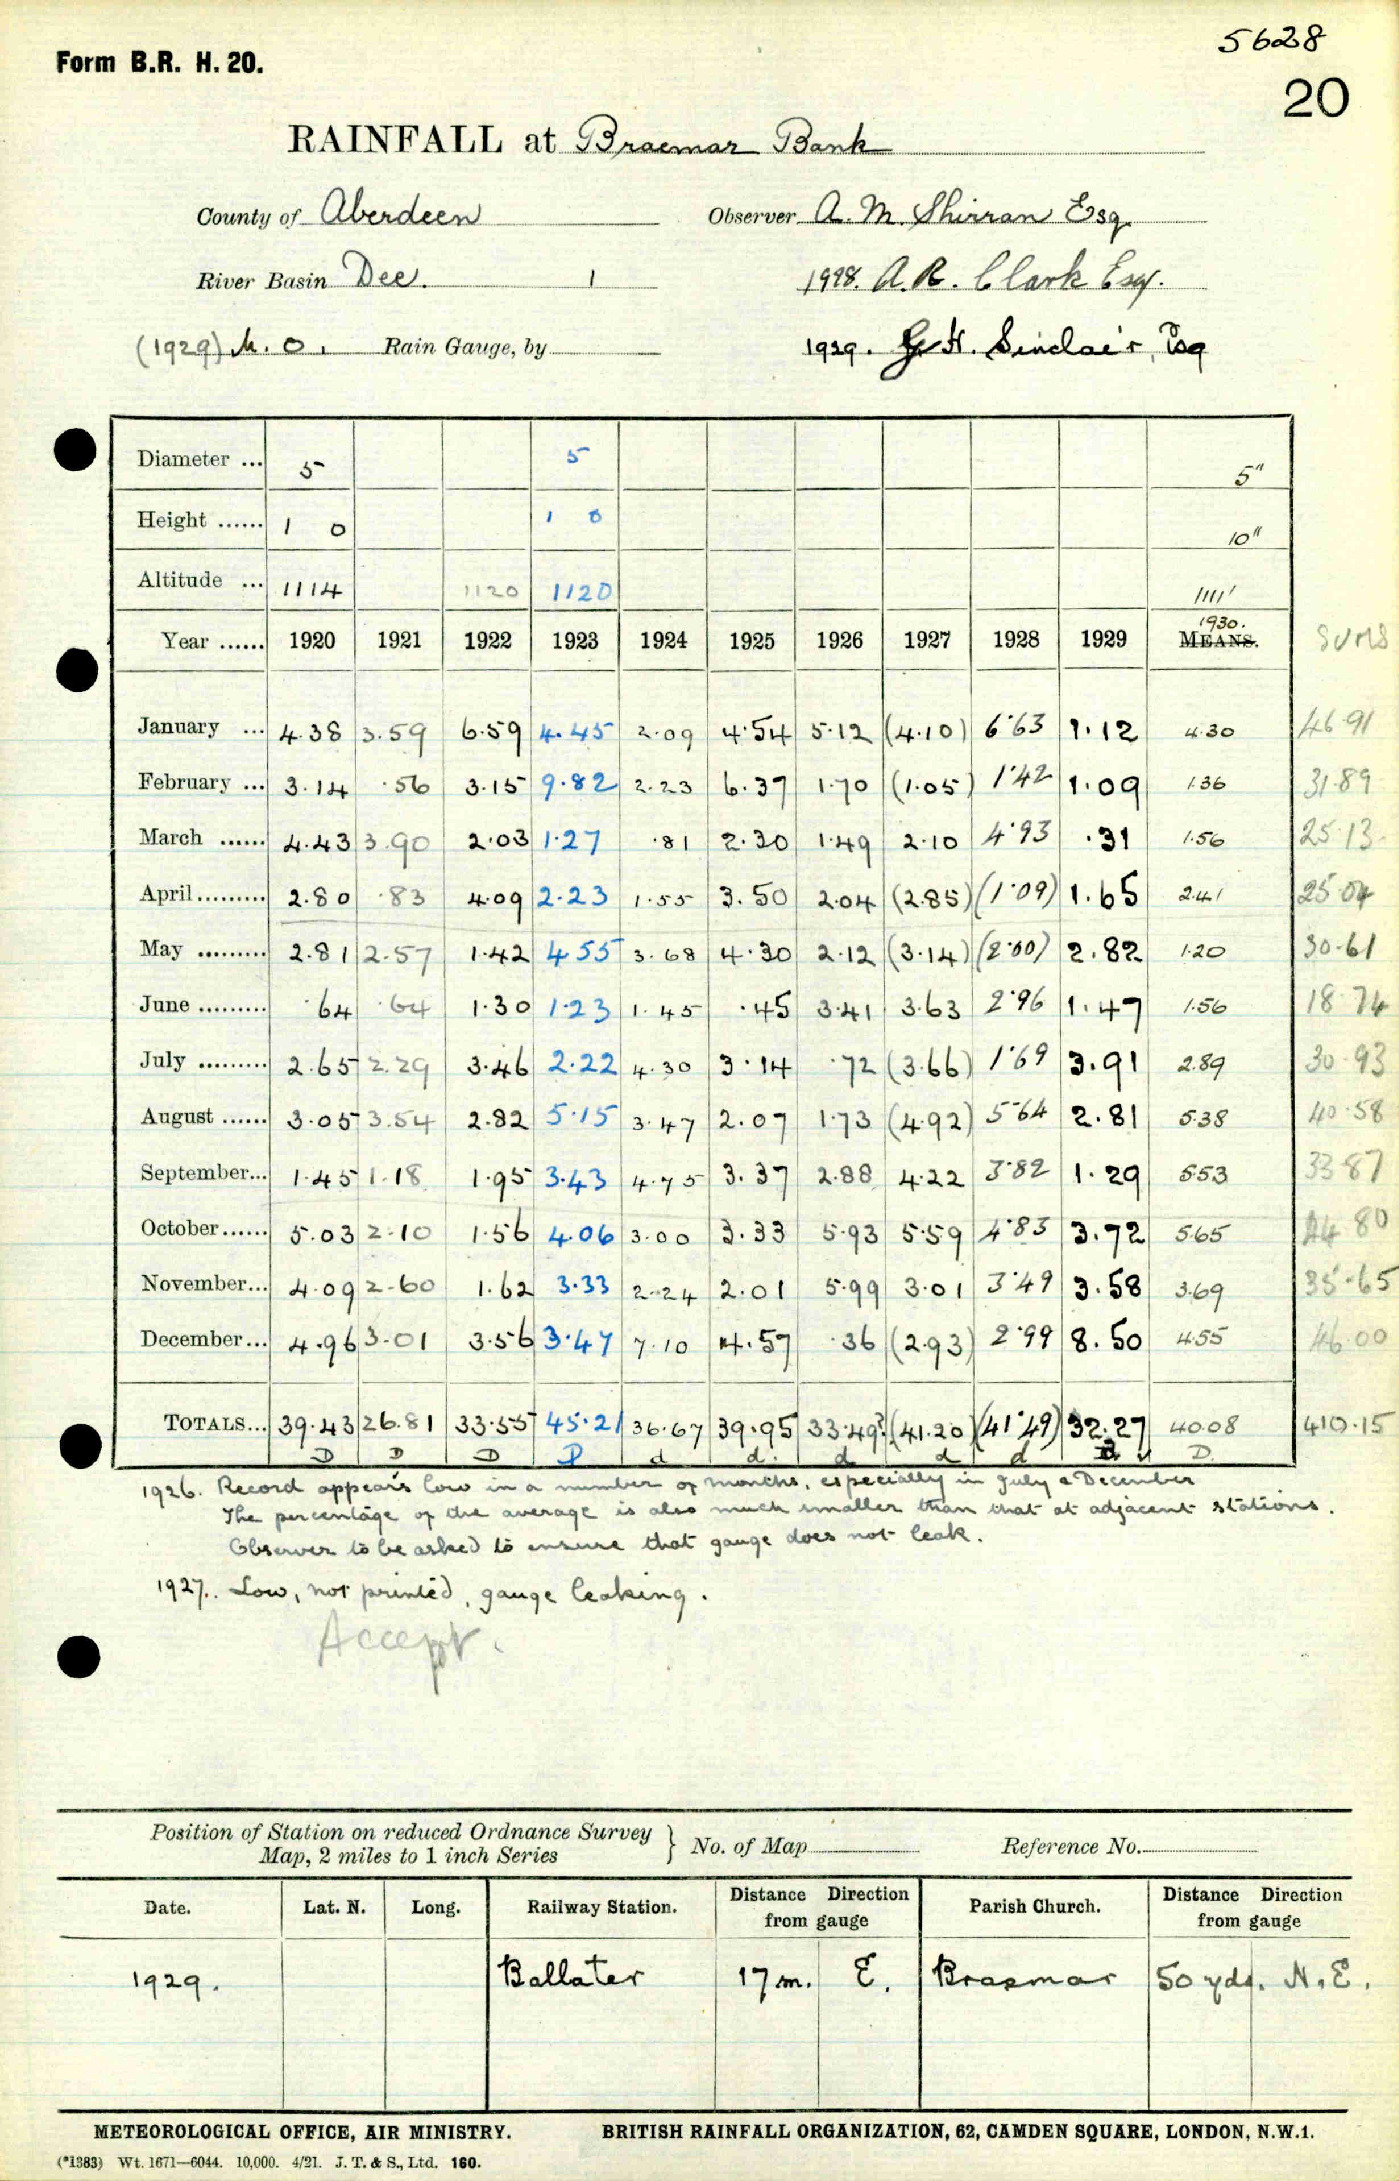 5628
Form B.R. H. 20.
20
RAINFALL at Braemar Bank
County of Aberdeen Observer A. M. Shirran Esq.
River Basin Dee. 1 1928. A. R. Clark Esq.
(1929) M. O. Rain Gauge, by 1929. G. H. Sinclair, Esq
Diameter ... 5 5 5"
Height ...... 1 0 1 0 10"
Altitude ... 1114 1120 1120 1111'
Year ...... 1920 1921 1922 1923 1924 1925 1926 1927 1928 1929 1930. MEANS. SUMS
January ... 4.38 3.59 6.59 4.45 2.09 4.54 5.12 (4.10) 6.63 1.12 4.30 46.91
February ... 3.14 .56 3.15 9.82 2.23 6.37 1.70 (1.05) 1.42 1.09 1.36 31.89
March ...... 4.43 3.90 2.03 1.27 .81 2.30 1.49 2.10 4.93 .31 1.56 25.13
April ......... 2.80 .83 4.09 2.23 1.55 3.50 2.04 (2.85) (1.09) 1.65 2.41 25.04
May ......... 2.81 2.57 1.42 4.55 3.68 4.30 2.12 (3.14) (2.00) 2.82 1.20 30.61
June ......... .64 .64 1.30 1.23 1.45 .45 3.41 3.63 2.96 1.47 1.56 18.74
July ......... 2.65 2.29 3.46 2.22 4.30 3.14 .72 (3.66) 1.69 3.91 2.89 30.93
August ...... 3.05 3.54 2.82 5.15 3.47 2.07 1.73 (4.92) 5.64 2.81 5.38 40.58
September... 1.45 1.18 1.95 3.43 4.75 3.37 2.88 4.22 3.82 1.29 5.53 33.87
October...... 5.03 2.10 1.56 4.06 3.00 3.33 5.93 5.59 4.83 3.72 5.65 44.80
November... 4.09 2.60 1.62 3.33 2.24 2.01 5.99 3.01 3.49 3.58 3.69 35.65
December... 4.96 3.01 3.56 3.47 7.10 4.57 .36 (2.93) 2.99 8.50 4.55 46.00
TOTALS... 39.43 26.81 33.55 45.21 36.67 39.95 33.49? (41.20) (41.49) 32.27 40.08 410.15
D D D D d d. d d d D
1926. Record appears low in a number of months, especially in July & December
The percentage of the average is also much smaller than that at adjacent stations.
Observer to be asked to ensure that gauge does not leak.
1927. Low, not printed, gauge leaking.
Accept.
Position of Station on reduced Ordnance Survey Map, 2 miles to 1 inch Series } No. of Map Reference No.
Date. Lat. N. Long. Railway Station. Distance Direction from gauge Parish Church. Distance Direction from gauge
1929. Ballater 17 m. E. Braemar 50 yds. N.E.
METEOROLOGICAL OFFICE, AIR MINISTRY. BRITISH RAINFALL ORGANIZATION, 62, CAMDEN SQUARE, LONDON, N.W.1.
(*1383) Wt. 1671—6044. 10,000. 4/21. J. T. & S., Ltd. 160.